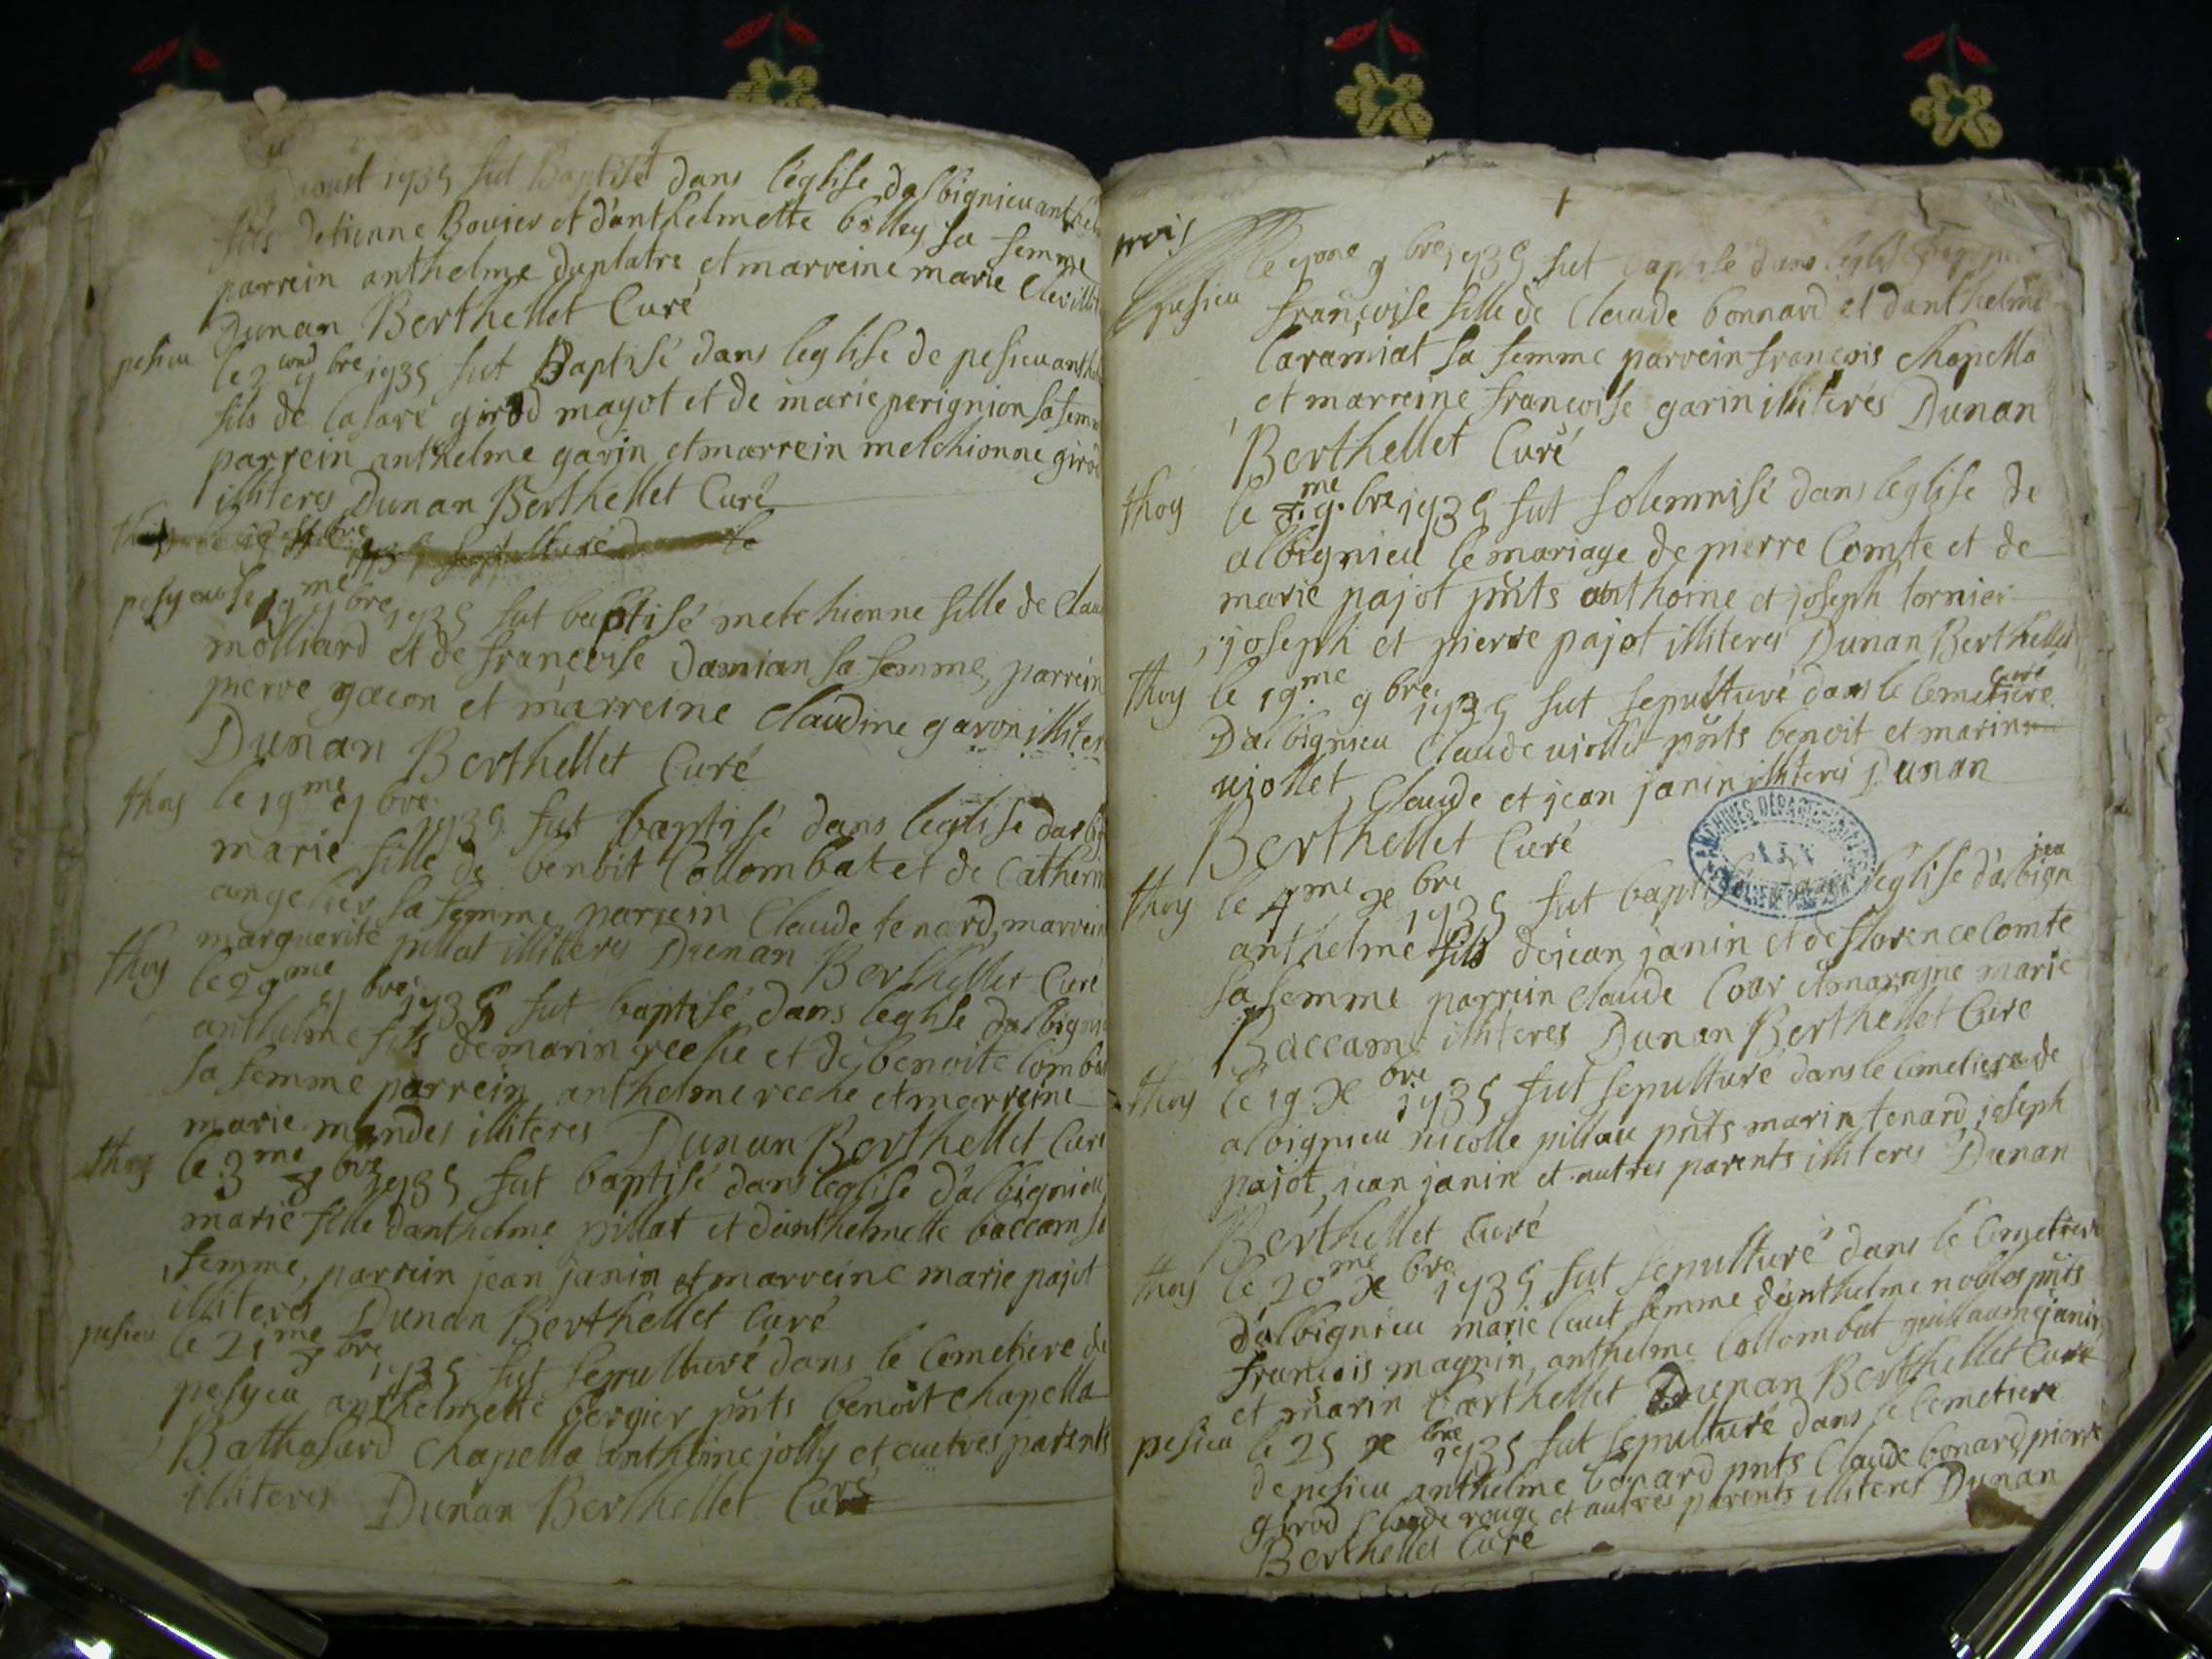 aoust 1735 fut Baptisé dans léglise dalbignieu anthel
fils detienne Bouvier et d'anthelmette balley sa femme
parrein anthelme duplatre et marreine marie
Dunan Berthellet Curé
pesieu le 2cond 7bre 1735 fut Baptisé dans leglise de pesieu anth
fils de lasare girod mayot et de marie perignion sa fem
parrein anthelme garin et marrein melchionne girod
illiteres Dunan Berthellet Curé
pesyeu le 19me 7bre 1735 fut baptisé melchionne fille de Clau
molliard et de françoise damian sa femme, parrein
pierre gacon et marreine Claudine garon illiter
Dunan Berthellet Curé
thoy le 19me 7bre 1735 fut baptisé dans leglise dalbig
marie fille de benoit Collombat et de Catherin
angelier sa femme parrein Claude tenard, marrein
marguerite pillat illiteres Dunan Berthellet Curé
thoy le 29me 7bre 1735 fut baptisé dans leglise dalbignie
anthelme fils de marin reche et de benoite Comba
sa femme parrein anthelme reche et marreine
marie mandes illiteres Dunan Berthellet Curé
thoy le 3me 8bre 1735 fut baptisé dans leglise d'albignieu
marie fille danthelme pillat et danthelmette baccam sa
femme, parrein jean janin et marreine marie pajot
illiteres Dunan Berthellet Curé
pesieu le 21me 8bre 1735 fut sepulturé dans le Cemetiere de
pesyeu anthelmette bergier pnts benoit Chapella
Bathasard Chapella anthelme jolly et autres parents
illiteres Dunan Berthellet Curé
trois
pesieu Le 9bre 1735 fut baptisé dans léglise
françoise fille de Claude bonnard et danthelme
Caramiat sa femme parrein françois Chapella
et marreine françoise garin illiterés Dunan
Berthellet Curé
thoy le 8.me 9.bre 1735 fut solemnisé dans leglise de
albignieu le mariage de pierre Comte et de
marie pajot pnts anthoine et joseph tornier
joseph et pierre pajot illiteres Dunan Berthellet
Curé
thoy le 19.me 9bre 1735 fut sepulturé dans le Cemetiere
Dalbignieu Claude viollet pnts benoit et marin
viollet, Claude et jean janin illiteres Dunan
Berthellet Curé
thoy le 4me Xbre 1735 fut bapti leglise d'albignieu
anthelme fils de jean janin et de florence Comte
sa femme parrein Claude Cour et marreine marie
Baccam illiteres Dunan Berthellet Curé
thoy le 19 Xbre 1735 fut sepulturé dans le Cemetiere de
albignieu nicolle pillau pnts marin tenard, joseph
pajot, jean janin et autres parents illiteres Dunan
Berthellet Curé
thoy le 20me Xbre 1735 fut sepulturé dans le Cemetiere
d'albignieu marie Caut femme danthelme nobles pnts
françois magnin, anthelme Collombat guillaume janin,
et marin barthellet Dunan Berthellet Curé
pesieu le 25 Xbre 1735 fut sepulturé dans le Cemetiere
de pesieu anthelme bonard pnts Claude bonard pierre
girod Claude rouge et autres parents illiteres Dunan
Berthellet Curé